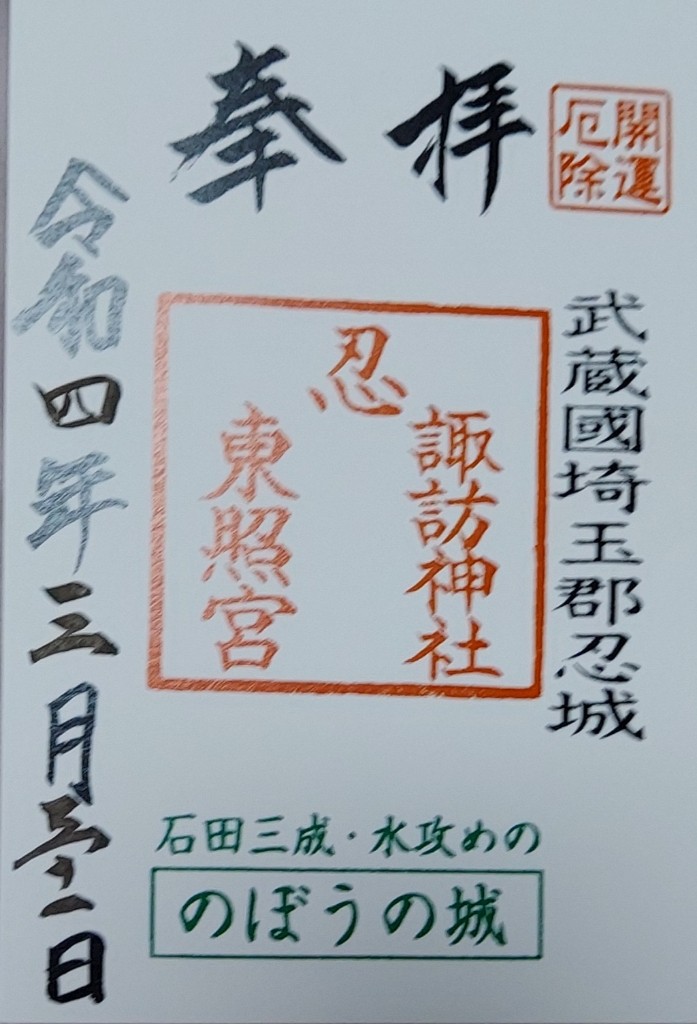 開運
厄除
奉拝
武蔵國埼玉郡忍城
忍
諏訪神社
東照宮
石田三成・水攻めの
のぼうの城
令和四年三月三十一日